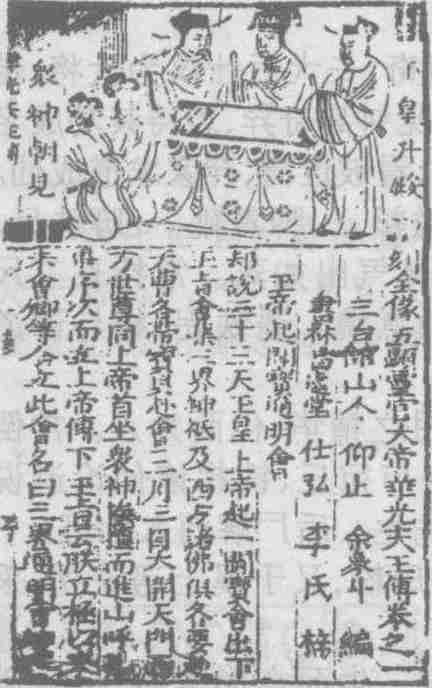 玉皇升殿
眾神朝見
刻全像五顯靈官大帝華光天王傳卷之一
三台館山人 仰止 余象斗 編
書林昌遠堂 仕弘 李氏 梓
玉帝起鬪寶通明會
却說三十三天玉皇上帝起一鬪寶會出下
玉旨會集三界神祇及西方諸佛俱各要
天曹各帶寶貝赴會三月三日大開天門
方世尊同上帝首坐眾神而進山呼
俱序次而坐上帝傳下玉旨云朕立極以來
未會卿等今立此會名曰三界通明會